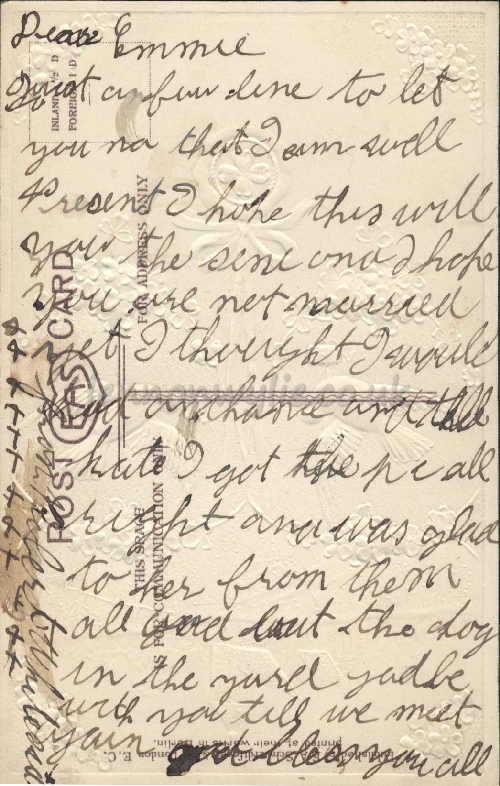 Dear Emmie
Just an few line to let
you no that I am well
Present I hope this will
you the sene and I hope
you are not married
yet I thought I would
had an chance and tell
kate I got the pc all
right and was glad
to her from them
all good but the dog
in the yard god be
with you till we meet
again god bless you all
from
POST CARD
FOR ADDRESS ONLY
THIS SPACE
IS FOR COMMUNICATION ONLY
INLAND
FOREIGN
London E. C.
printed at their works in Berlin.